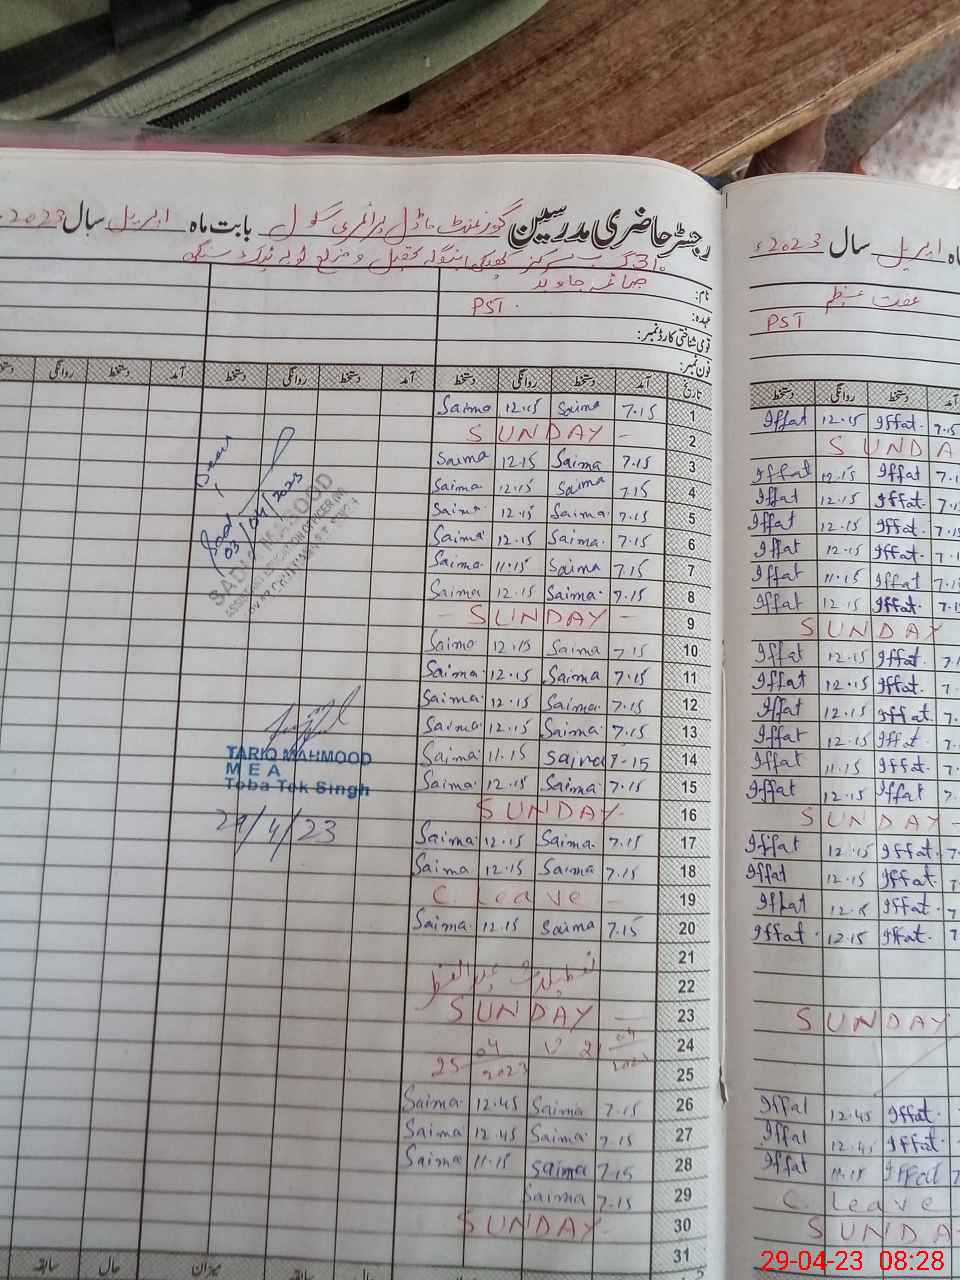 رجسٹر حاضری مدرسین گورنمنٹ ماڈل پرائمری سکول بابت ماہ اپریل سال 2023ء
نام:
عہدہ: PST
قومی شناختی کارڈ نمبر:
فون نمبر:
تاریخ آمد دستخط روانگی دستخط آمد دستخط روانگی دستخط آمد دستخط روانگی
1 7.15 Saima 12.15 Saima
2 SUNDAY -
3 7.15 Saima 12.15 Saima
4 7.15 Saima 12.15 Saima
5 7.15 Saima 12.15 Saima
6 7.15 Saima 12.15 Saima
7 7.15 Saima 11.15 Saima
8 7.15 Saima 12.15 Saima
9 - SUNDAY -
10 7.15 Saima 12.15 Saima
11 7.15 Saima 12.15 Saima
12 7.15 Saima 12.15 Saima
13 7.15 Saima 12.15 Saima
14 7-15 Saima 11.15 Saima
15 7.15 Saima 12.15 Saima
16 SUNDAY-
17 7.15 Saima 12.15 Saima
18 7.15 Saima 12.15 Saima
19 C. Leave -
20 7.15 Saima 12.15 Saima
21
22 تعطیلات عید الفطر
23 SUNDAY -
24 21 04/2023
25 25 04/2023
26 7.15 Saima 12.45 Saima
27 7.15 Saima 12.45 Saima
28 7.15 Saima 11.15 Saima
29 7.15 Saima
30 SUNDAY-
31
میزان حال سابقہ
03/04/2023
TARIQ MAHMOOD
M E A
Toba Tek Singh
29/4/23
اپریل سال 2023ء
عفت
PST
آمد دستخط روانگی دستخط
7.15 Iffat. 12.15 Iffat
SUNDA
7.1 Iffat 12.15 Iffat
7. Iffat 12.15 Iffat
7.15 Iffat. 12.15 Iffat
7. Iffat. 12.15 Iffat
7.1 Iffat 11.15 Iffat
7.1 Iffat 12.15 Iffat
SUNDAY
7. Iffat. 12.15 Iffat
7. Iffat. 12.15 Iffat
7. Iffat. 12.15 Iffat
7. Iffat. 12.15 Iffat
7. Iffat. 11.15 Iffat
7. Iffat 12.15 Iffat
SUNDAY -
7. Iffat. 12.15 Iffat
7. Iffat. 12.15 Iffat
7 Iffat. 12.15 Iffat
7 Iffat. 12.15 Iffat.
SUNDAY
Iffat. 12.45 Iffat
Iffat. 12.45 Iffat
Iffat 11.15 Iffat
C. Leave
SUNDA
29-04-23 08:28